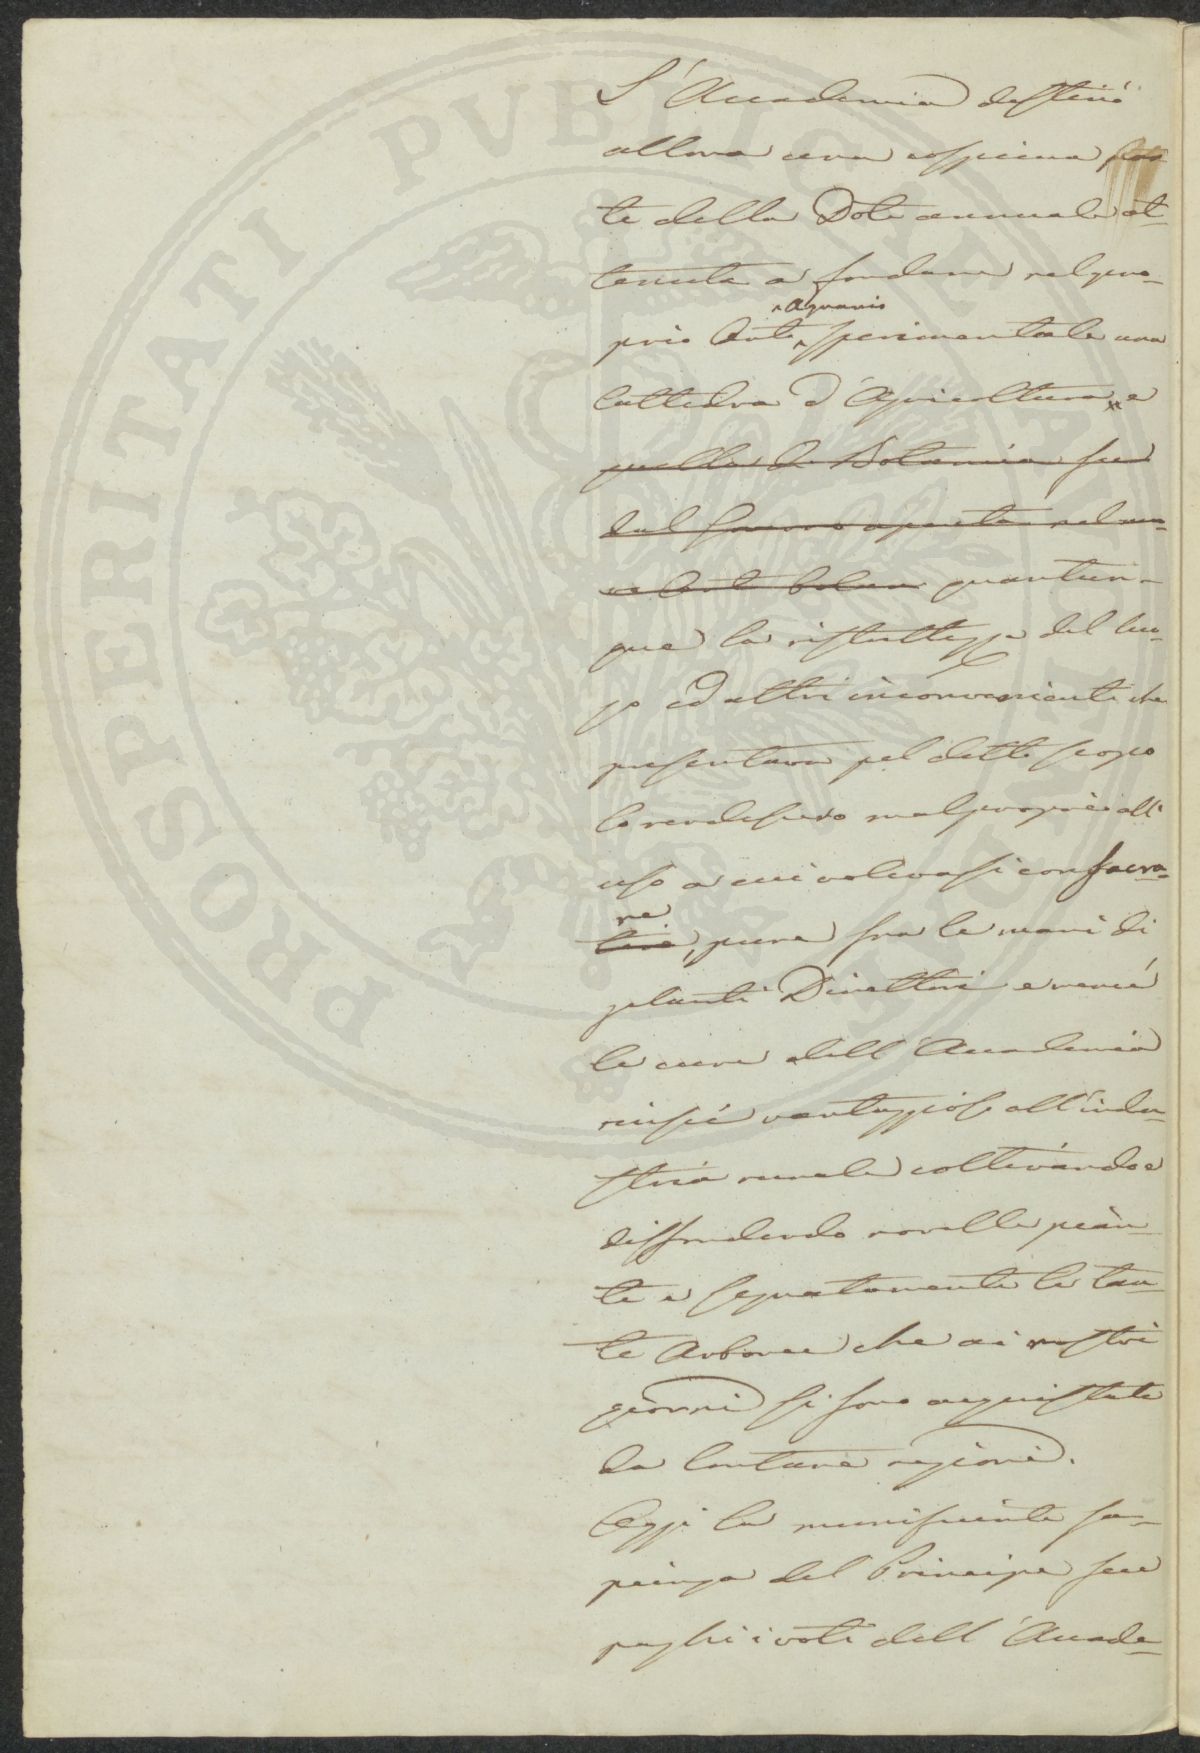 L'Accademia destinò
allora una cospicua par
te della Dote annuale ot-
tenuta a fondare nel pro-
prio Orto Agrario sperimentale una
Cattedra d'Agricoltura e
quella di Botanica fu
dal Governo aperta nel nuo-
vo Orto botan quantun-
que la ristrettezza del luo-
go ed altri inconvenienti che
presentava pel detto scopo
lo rendessero mal proprio all'
uso a cui volevasi consacra-
re, pure fra le mani di
zelanti Direttori e mercé
le cure dell'Accademia
riuscì vantaggioso all'indu-
stria rurale coltivando e
diffondendo novelle pian-
te e segnatamente le tan-
te Arboree che ai nostri
giorni si sono acquistate
da lontane regioni.
Oggi la munificente sa-
pienza del Principe fece
paghi i voti dell'Accade-
PROSPERITATI PUBLICAE AUGENDAE